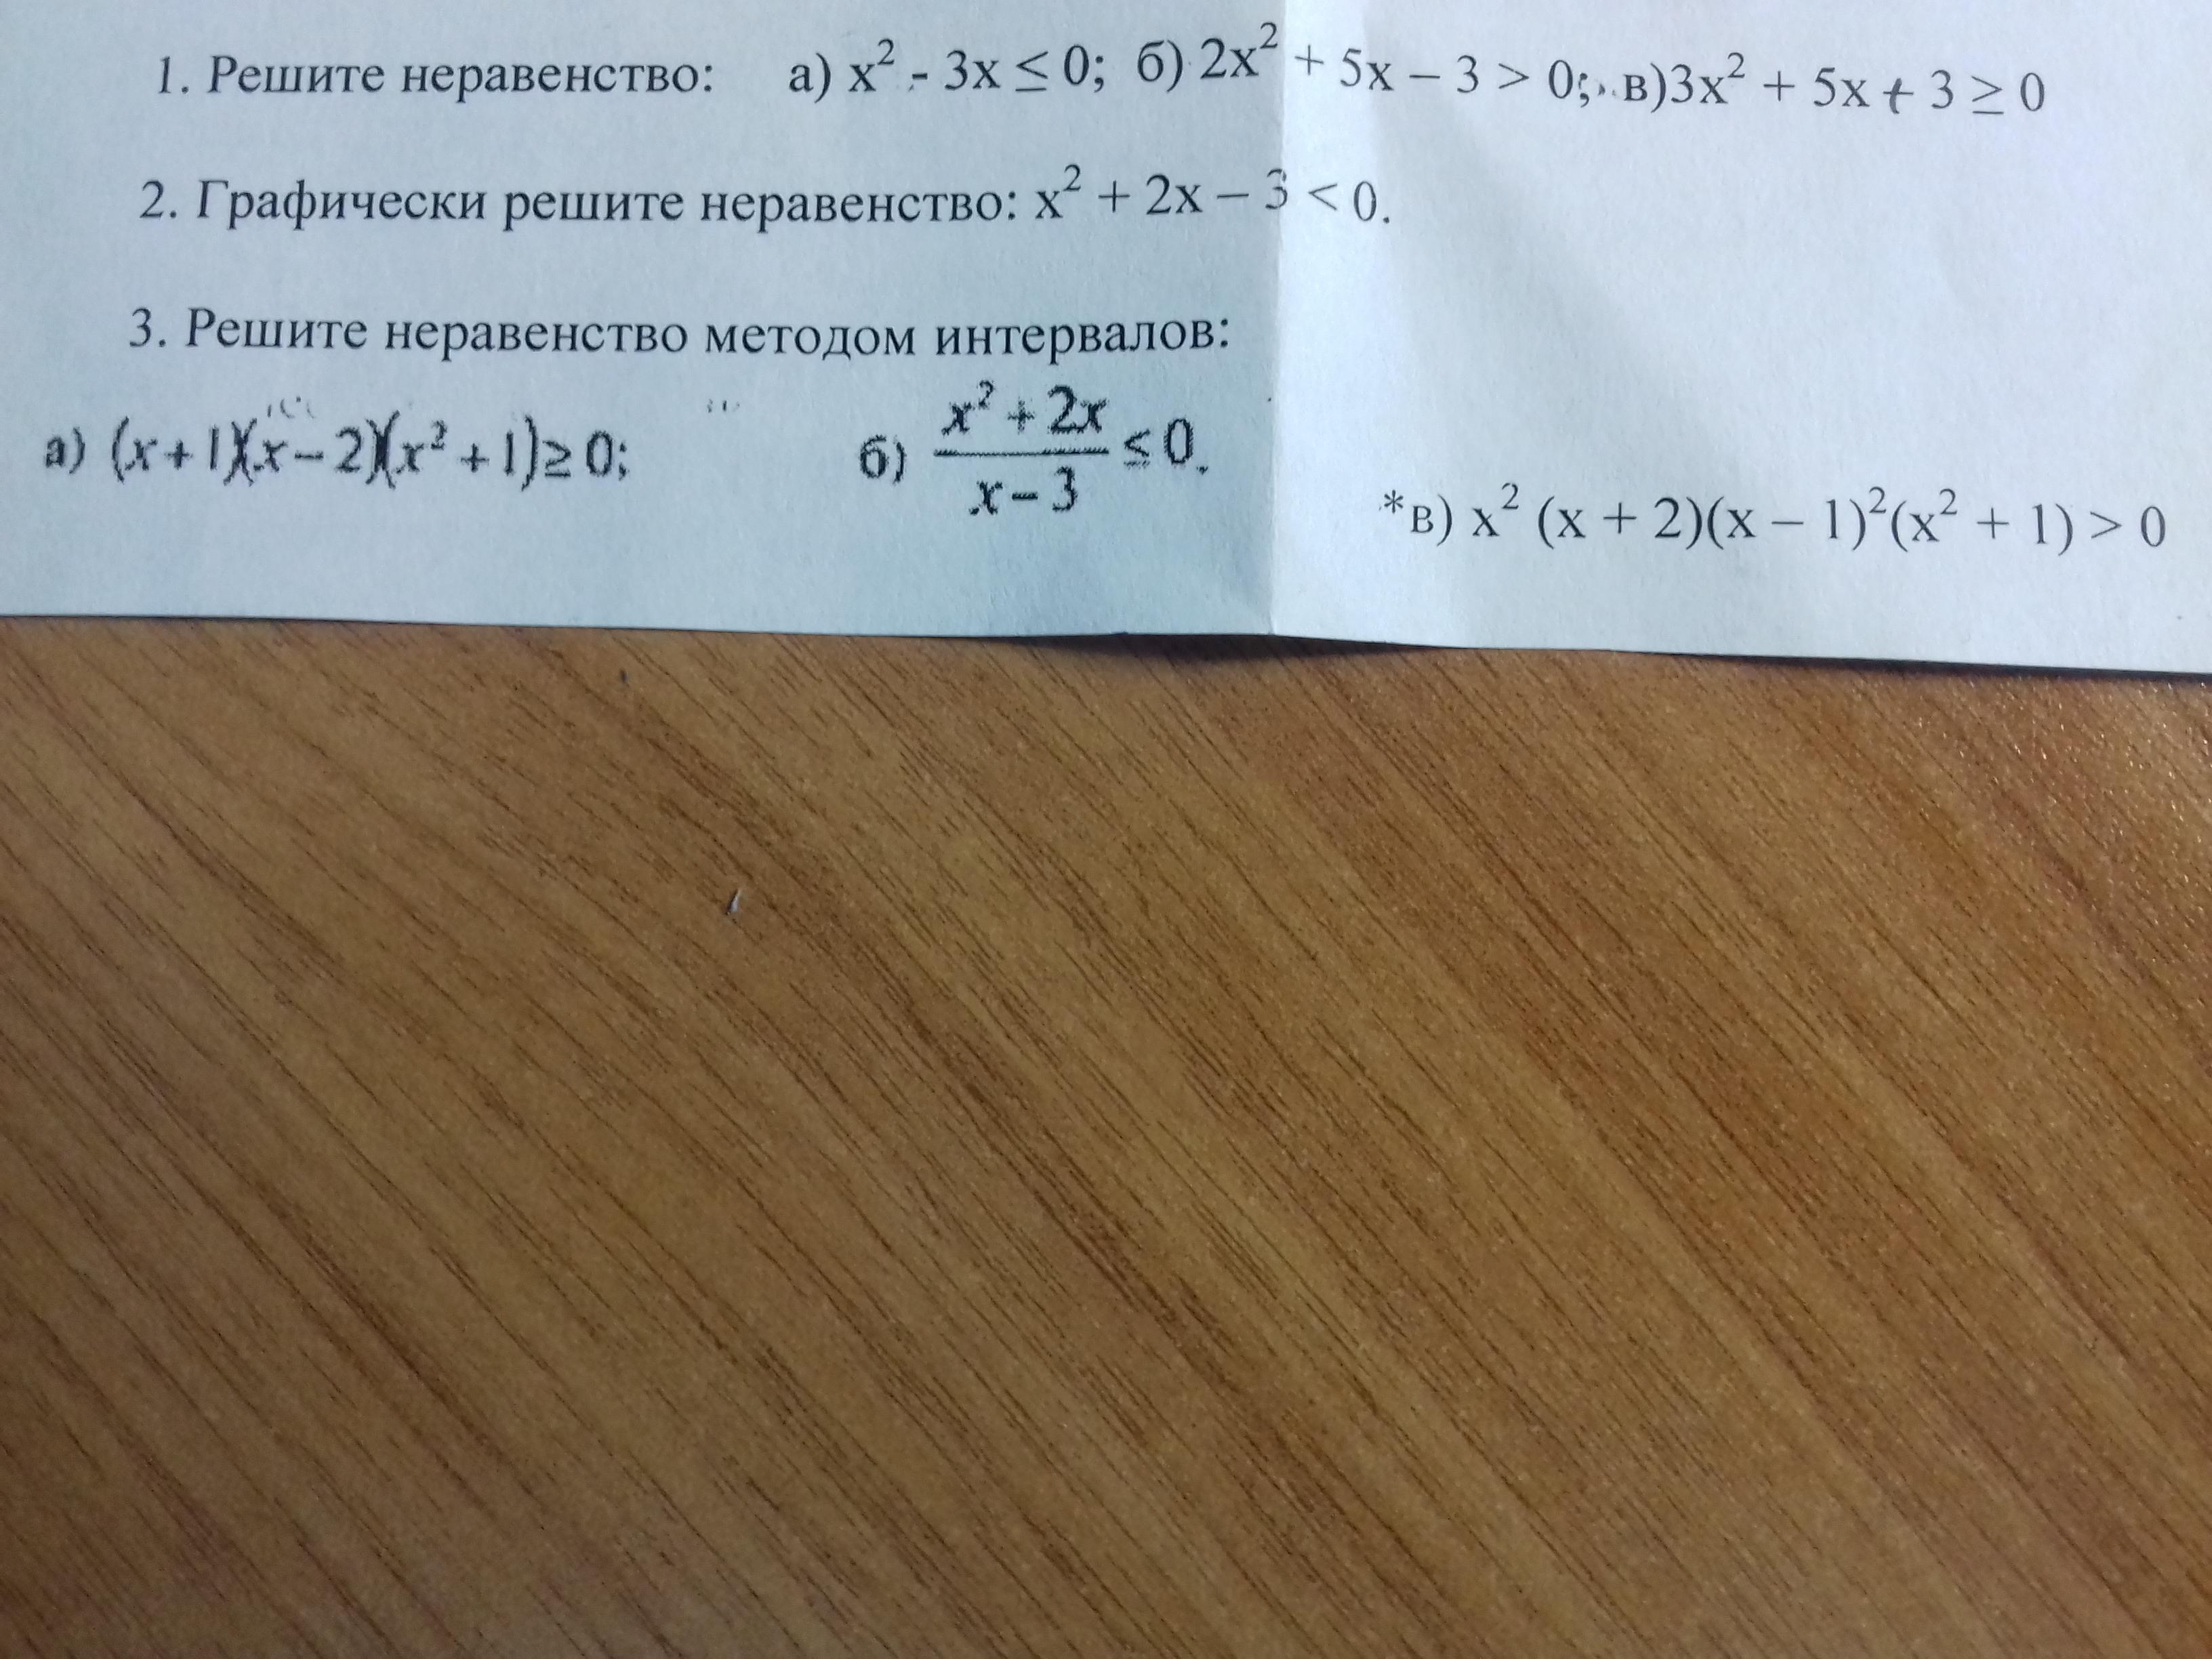 1. Решите неравенство: а) x² - 3x ≤ 0; б) 2x² + 5x – 3 > 0; в)3x² + 5x + 3 ≥ 0
2. Графически решите неравенство: x² + 2x – 3 < 0.
3. Решите неравенство методом интервалов:
а) (x+1)(x–2)(x²+1)≥0; б) (x²+2x)/(x–3) ≤0.
*в) x² (x + 2)(x – 1)²(x² + 1) > 0